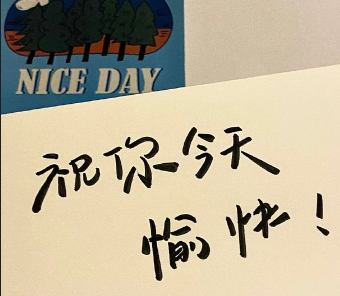 NICE DAY
祝你今天
愉快！